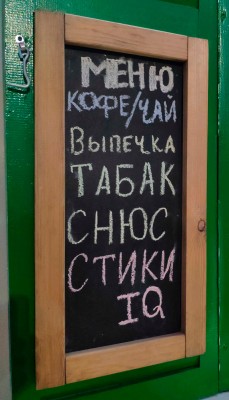 МЕНЮ
КОФЕ/ЧАЙ
Выпечка
ТАБАК
СНЮС
СТИКИ
IQ